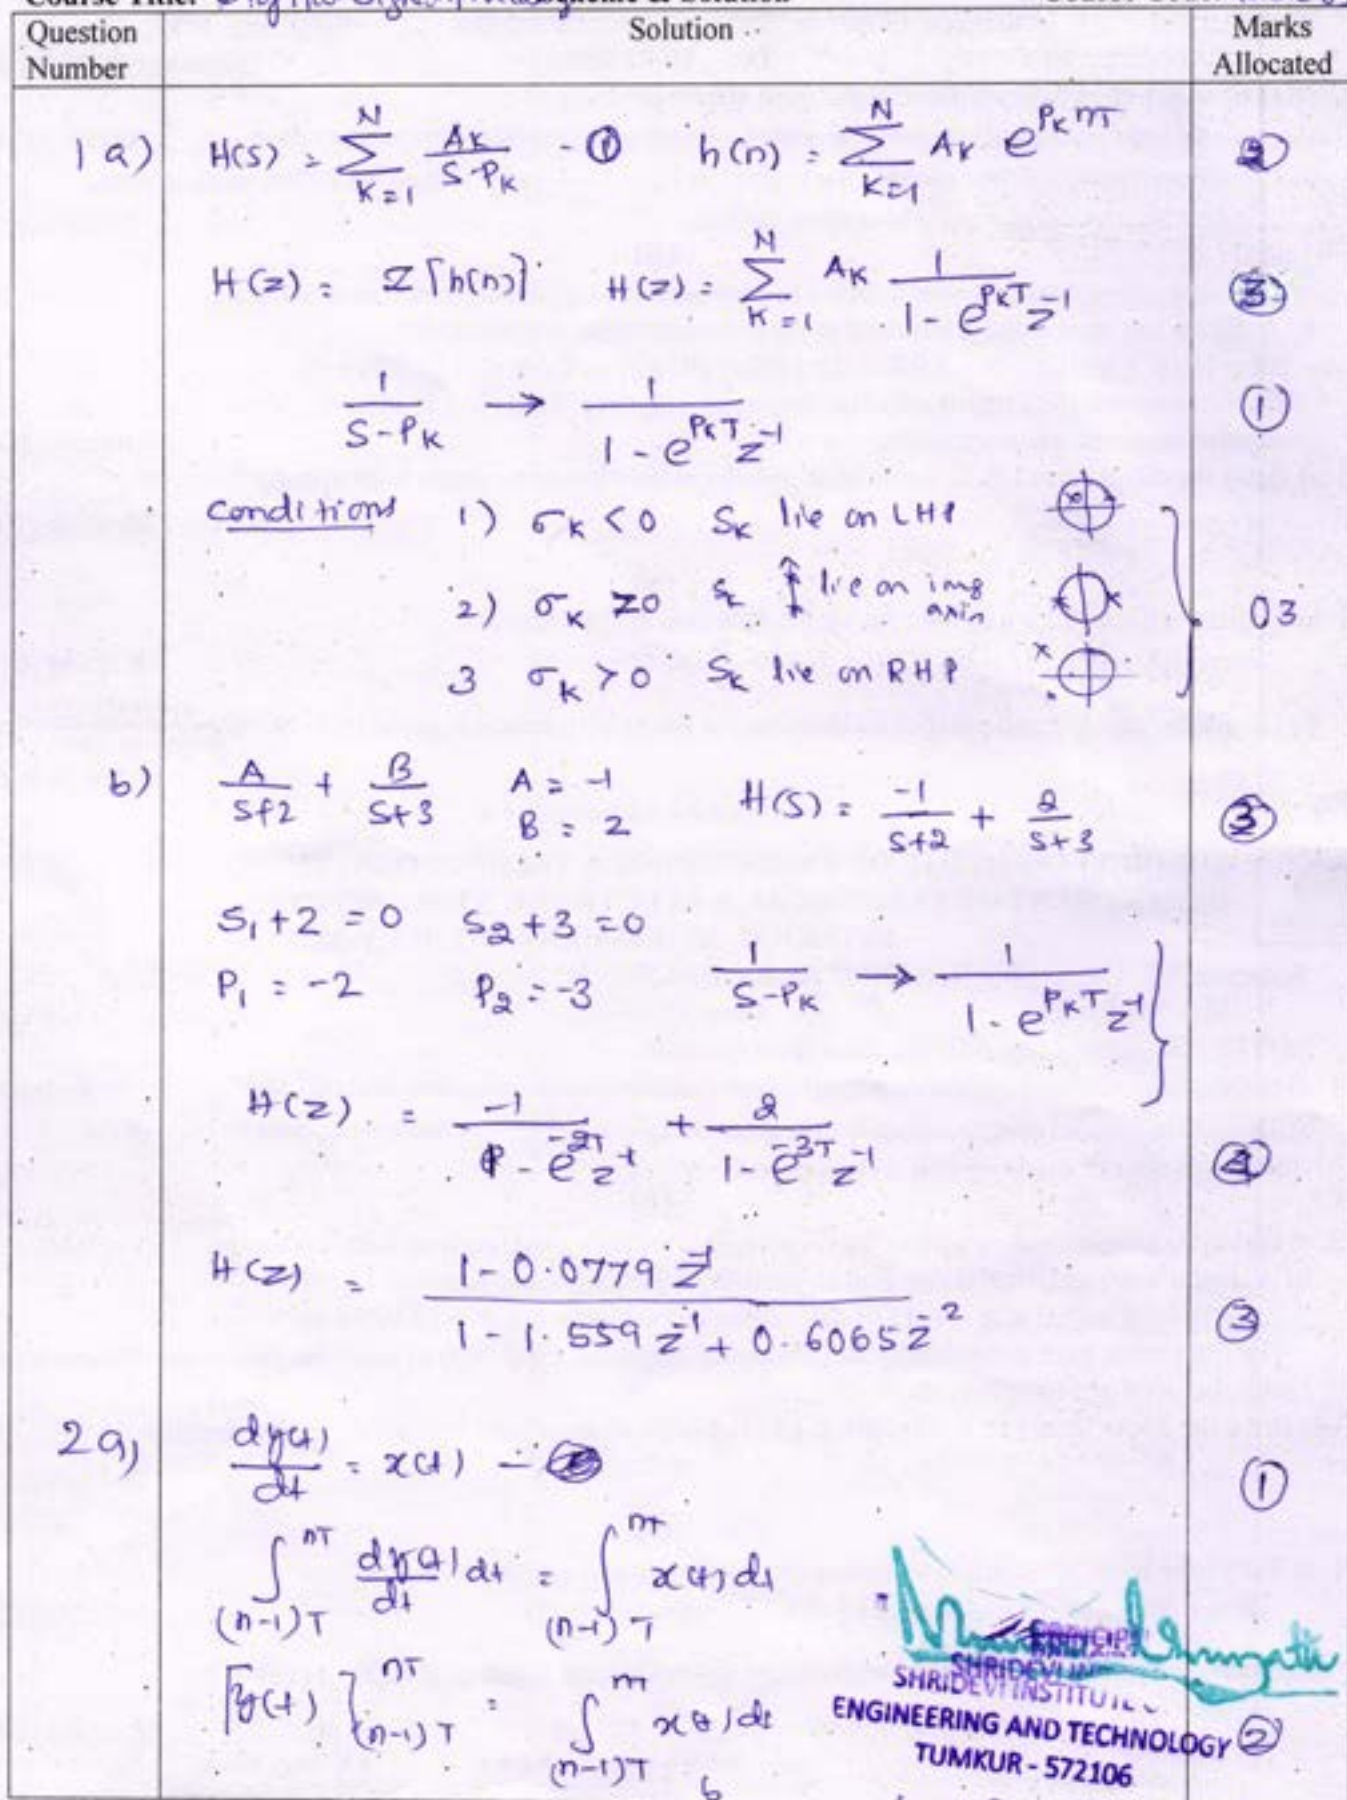 Question Number
Solution
Marks Allocated
1 a) H(S) = ∑_{K=1}^{N} A_K / (S-P_K) - ① h(n) = ∑_{K=1}^{N} A_K e^{P_K nT} ②
H(z) = Z[h(n)] H(z) = ∑_{K=1}^{N} A_K 1 / (1 - e^{P_K T} z^{-1}) ③
1 / (S-P_K) → 1 / (1 - e^{P_K T} z^{-1}) ①
conditions 1) σ_K < 0 S_K lie on LHP
2) σ_K 20 S_K lie on img axis 03
3 σ_K > 0 S_K lie on RHP
b) A / (S+2) + B / (S+3) A = -1 B = 2 H(S) = -1 / (S+2) + 2 / (S+3)
S_1+2 = 0 S_2+3 = 0
P_1 = -2 P_2 = -3 1 / (S-P_K) → 1 / (1 - e^{P_K T} z^{-1})
H(z) = -1 / (1 - e^{-2T} z^{-1}) + 2 / (1 - e^{-3T} z^{-1})
H(z) = (1 - 0.0779 z^{-1}) / (1 - 1.559 z^{-1} + 0.6065 z^{-2}) ③
2 a) dy(t) / dt = x(t) - ①
∫_{(n-1)T}^{nT} dy(t)/dt dt = ∫_{(n-1)T}^{nT} x(t) dt
[y(t)]_{(n-1)T}^{nT} = ∫_{(n-1)T}^{nT} x(t) dt ②
SHRIDEVI INSTITUTE
ENGINEERING AND TECHNOLOGY
TUMKUR - 572106